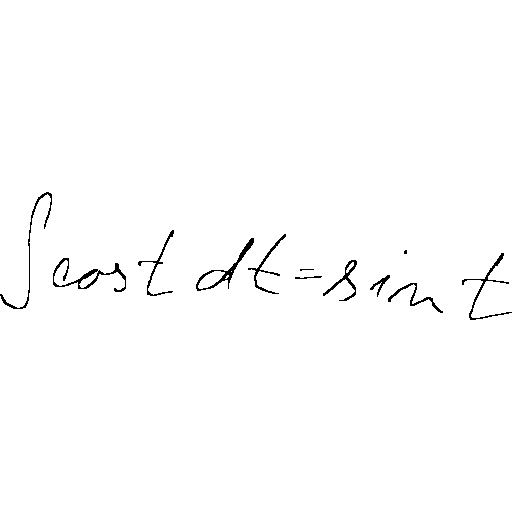 ∫cos t dt = sin t